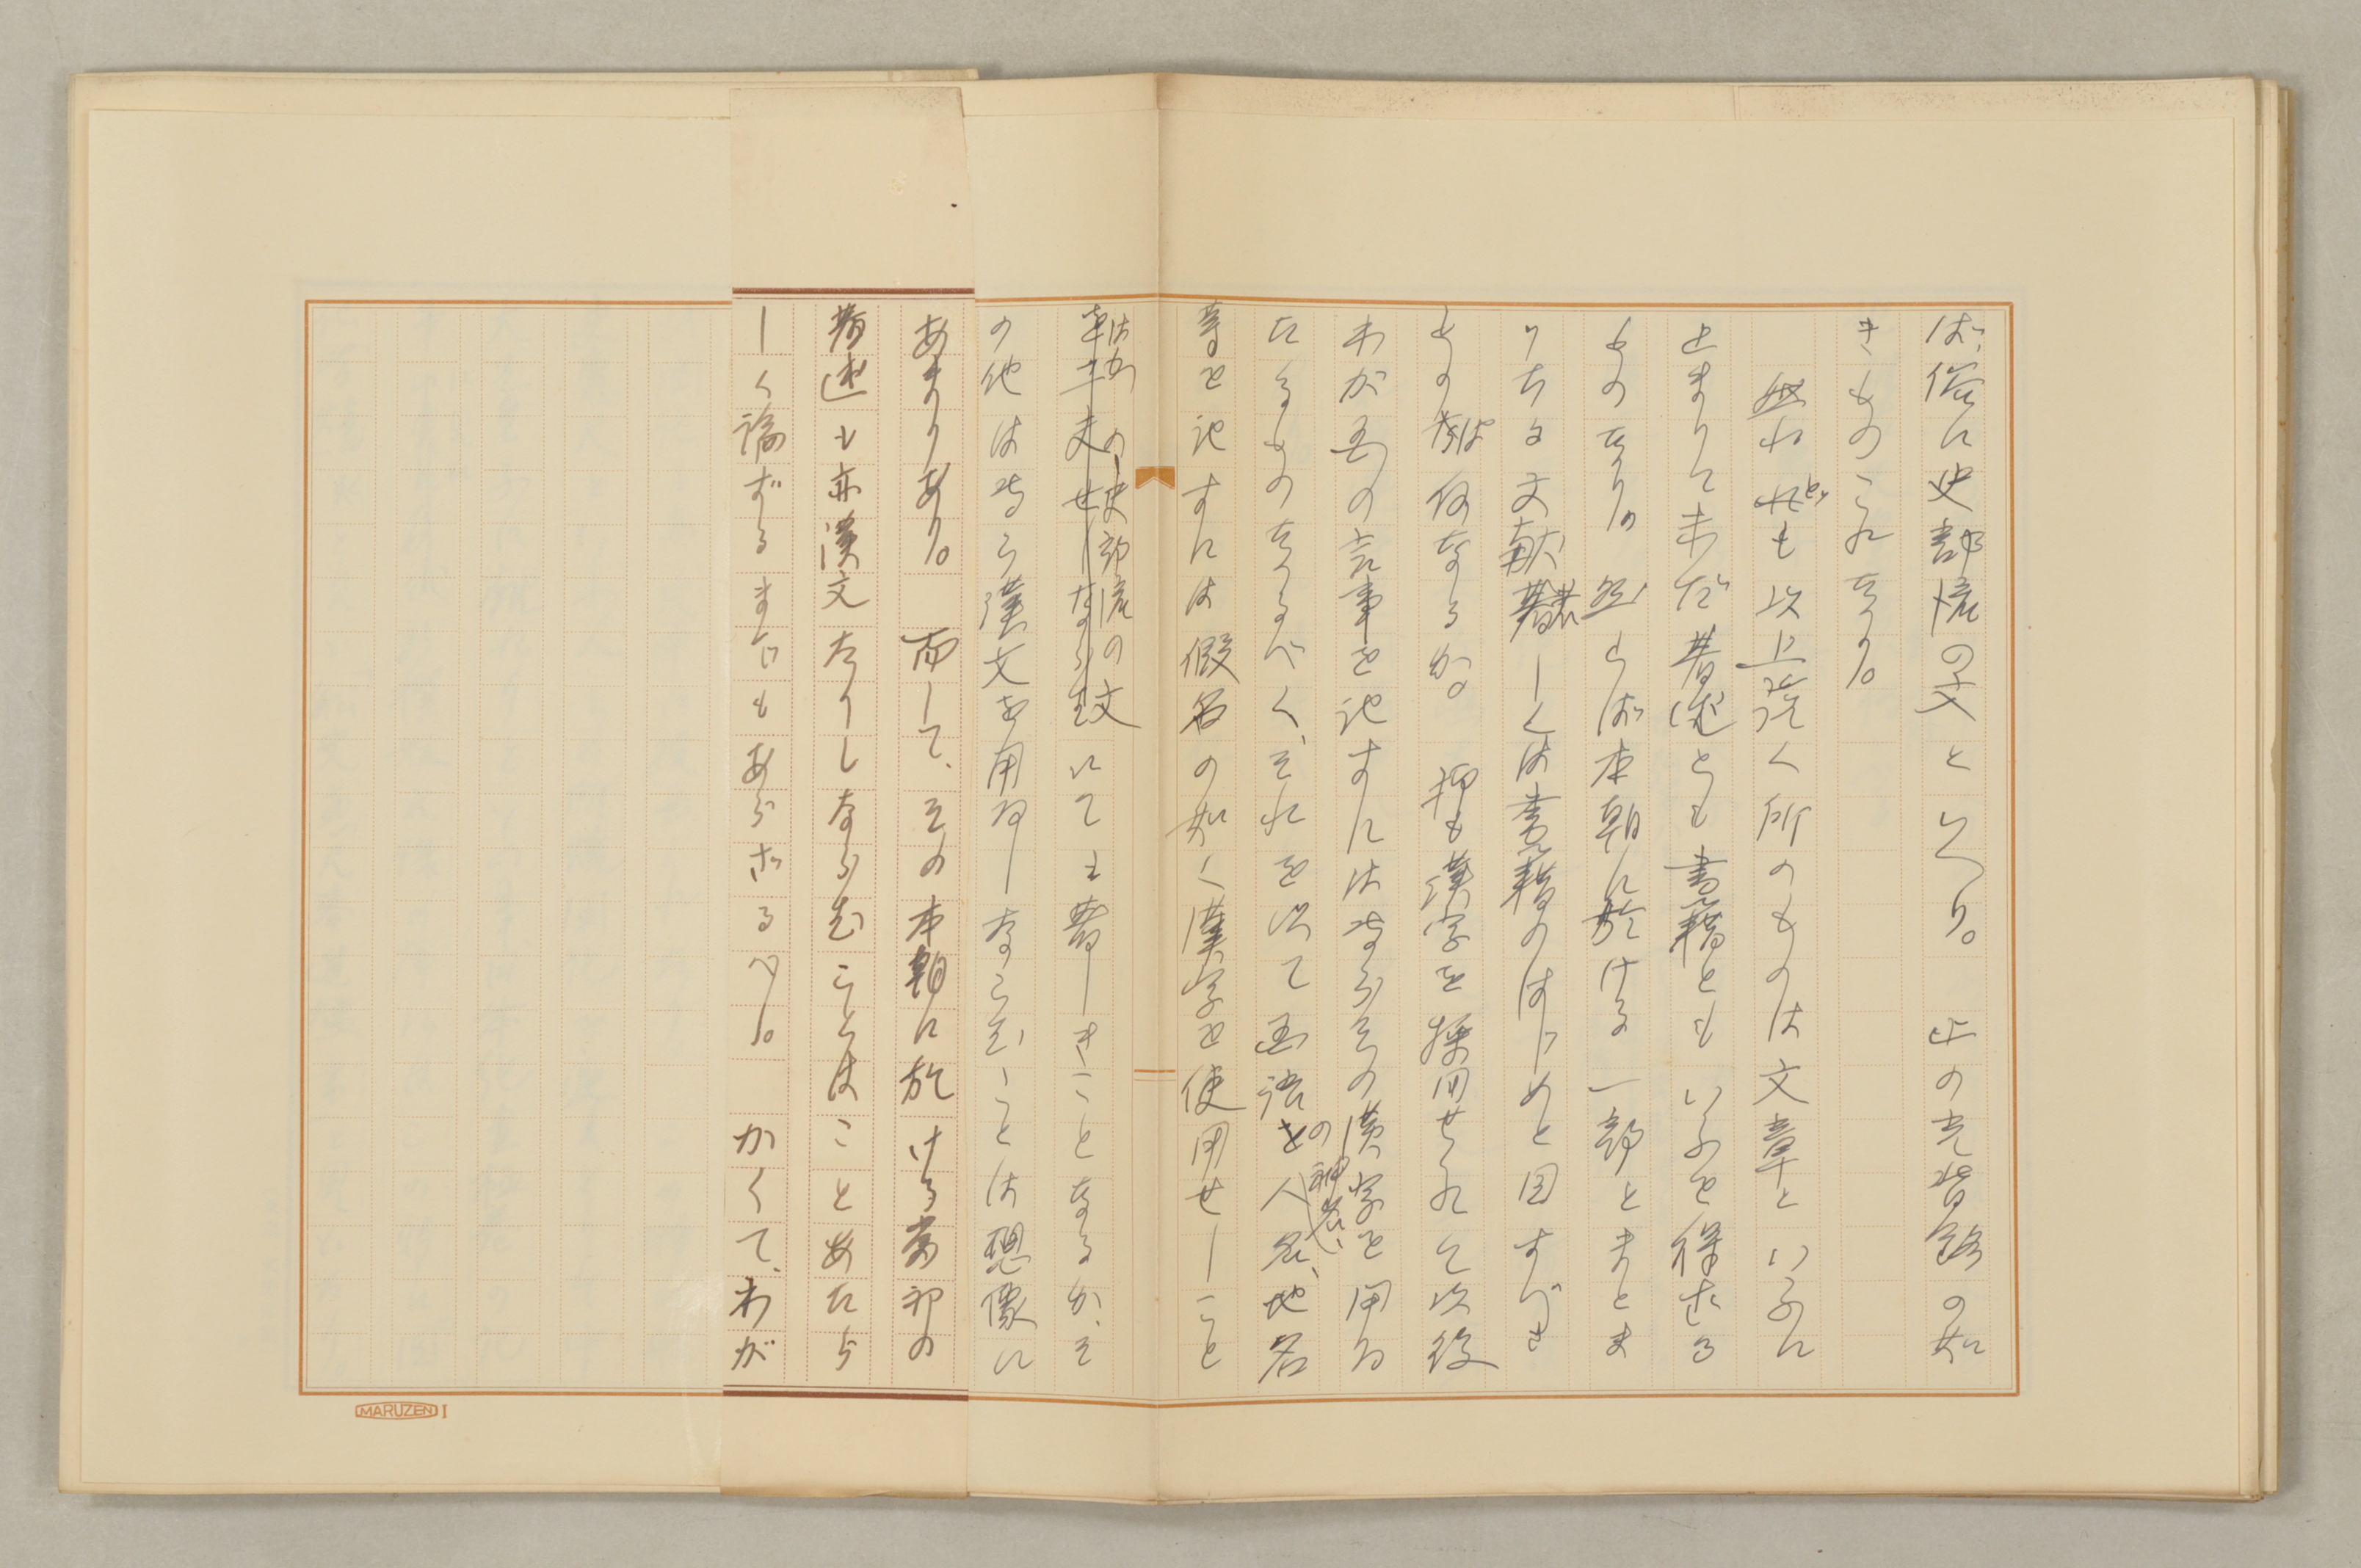 ば、俗に史部流の文といへり。 正の充背銘の如
きものこれなり。
然れども以上説く所のものは文章といふに
止まりて未だ著述とも書籍ともいふを得ざる
ものなり。 然らば本朝に於ける一部とまとま
りたる文献若しくは書籍のはじめと目すべき
ものは何なるか。 抑も漢字を採用せられて以後
わが国の言事を記すには専らその漢字を用ゐ
たるものなるべく、それを以て国語の神名、人名、地名
等を記すには假名の如く漢字を使用せしこと
はかの史部流の文にても著しきことなるが、そ
の他は専ら漢文を用ゐしならむことは想像に
あまりあり。 而して、その本朝に於ける当初の
著述も亦漢文なりしならむことはことあたら
しく論ずるまでもあらざるべし。 かくて、わが
MARUZEN I